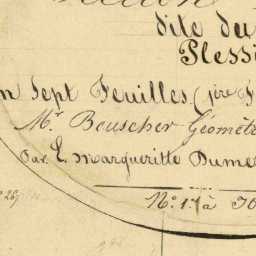 dite du
Plessi
n Sept Feuilles (1ère F
Mr Beuscher Géomètr
Par E. Margueritte Dume
No. 1 à 30